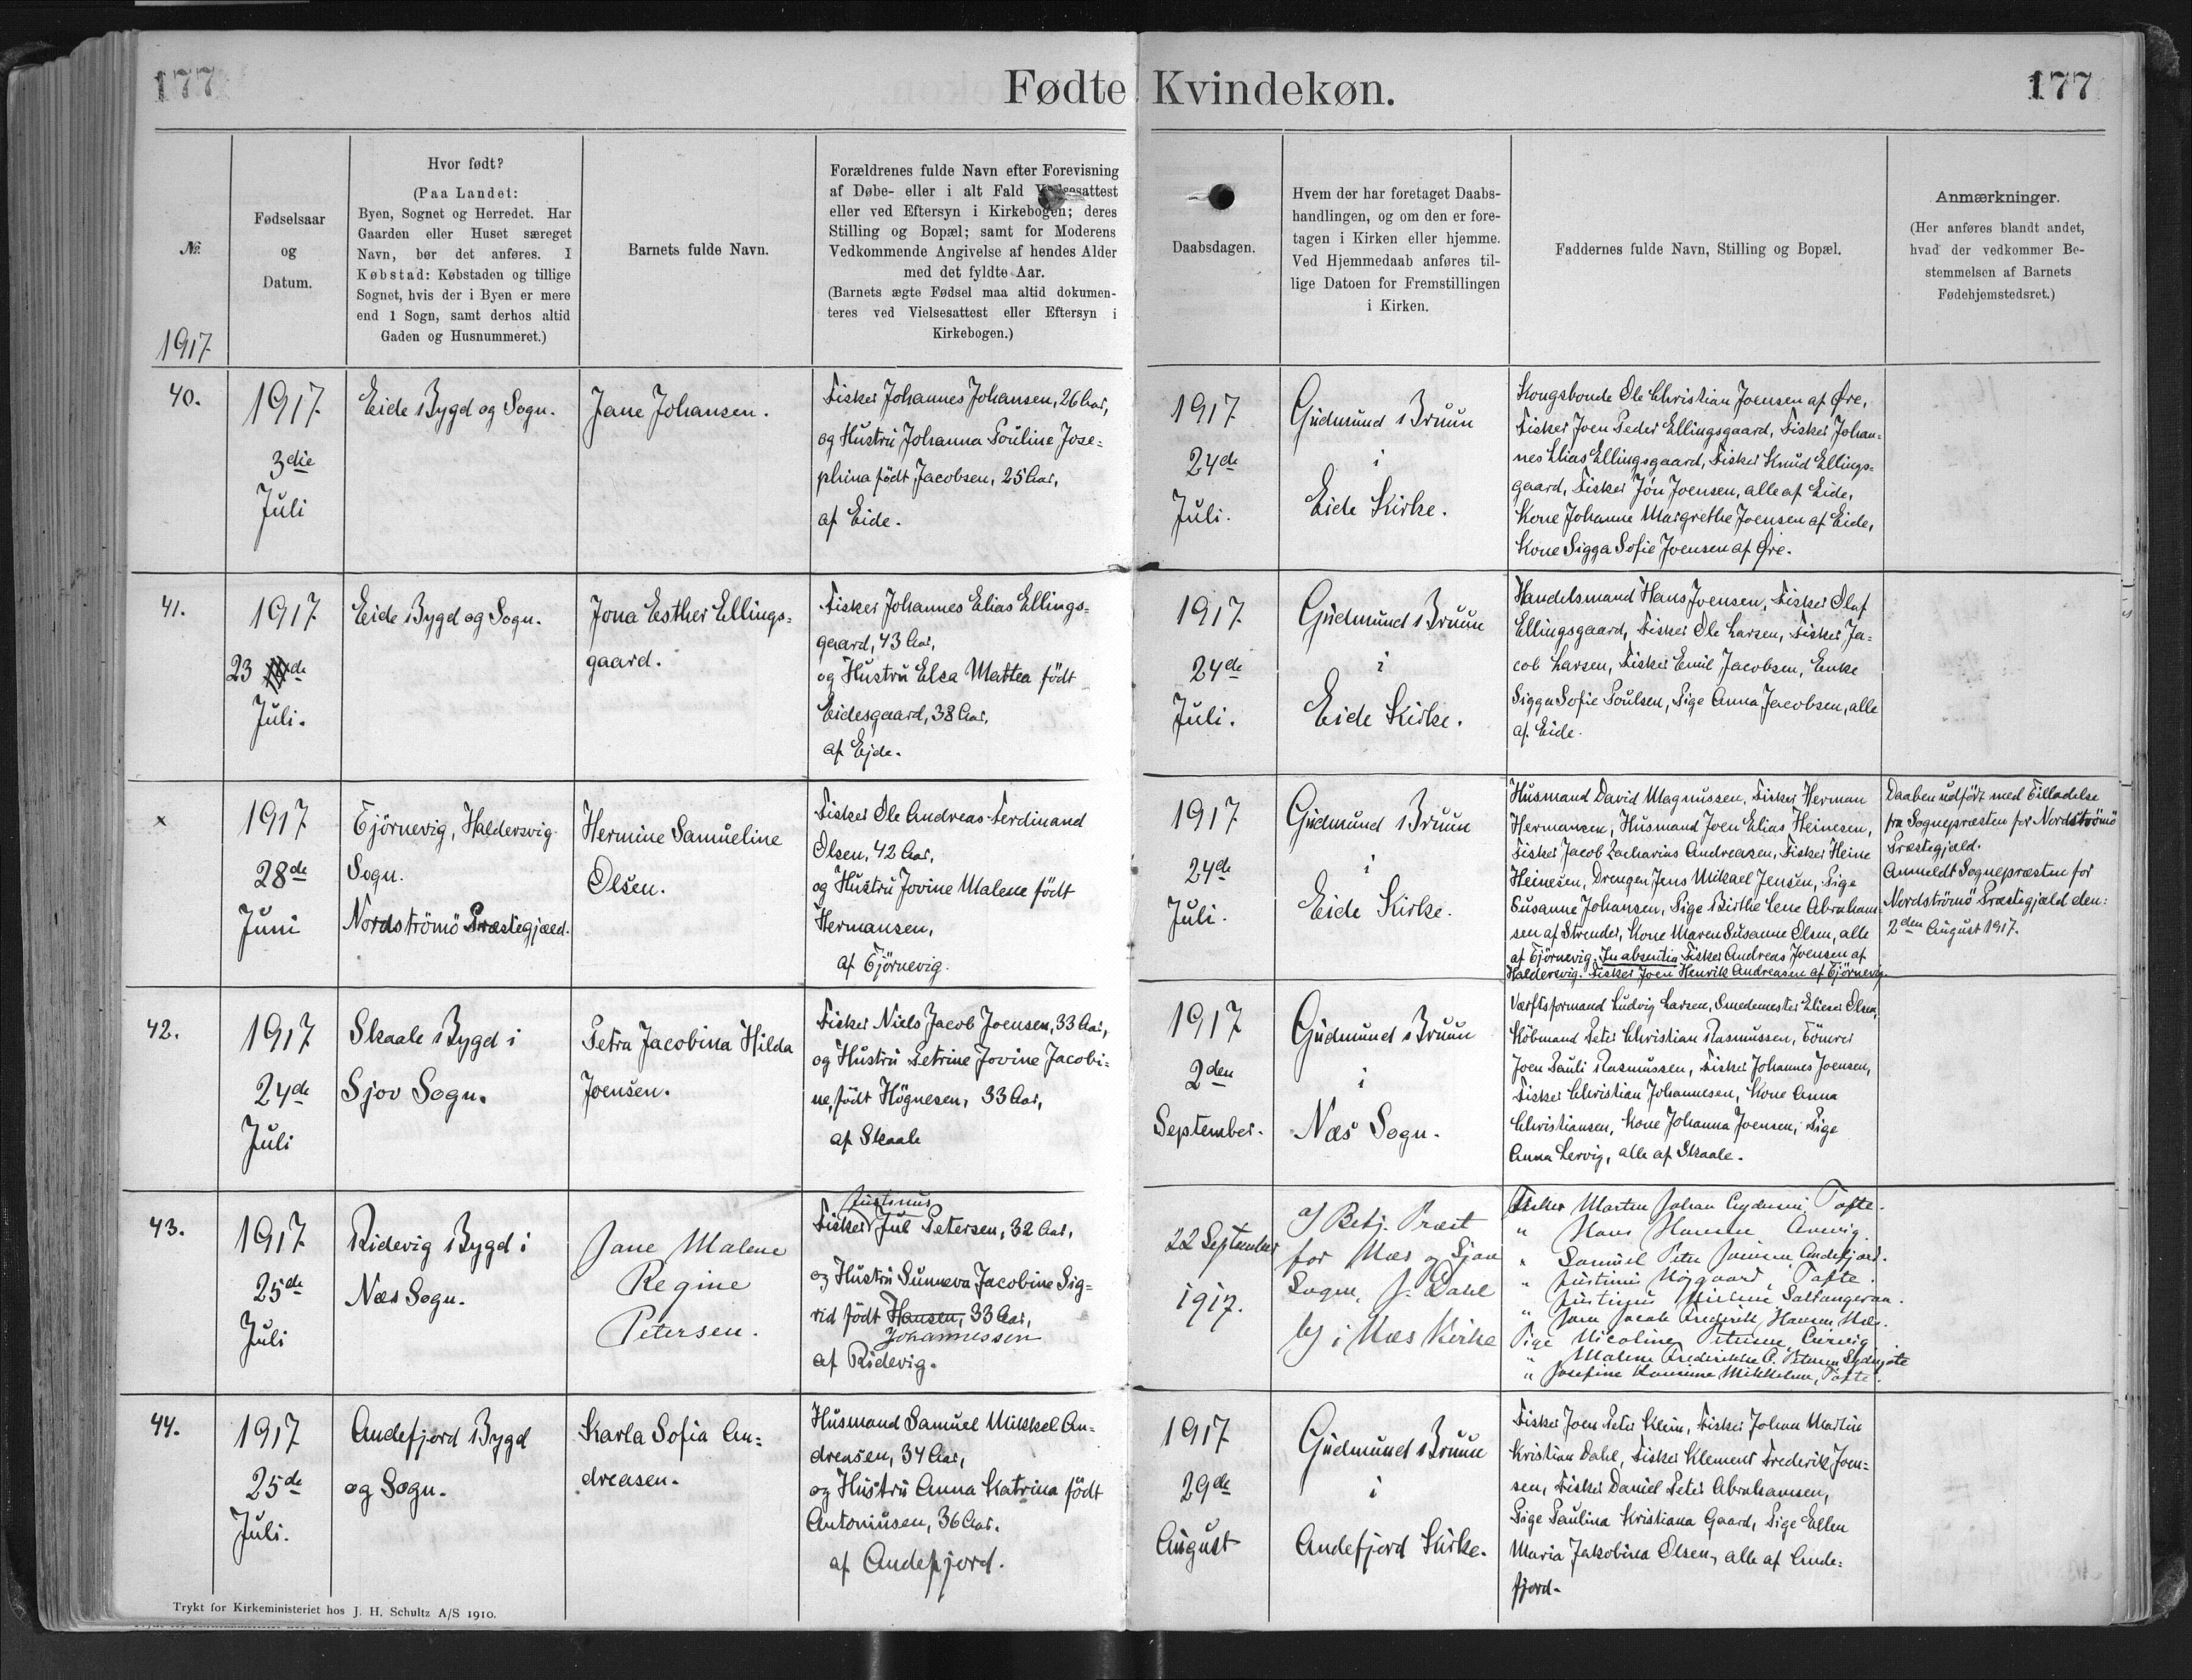 177
Fødte Kvindekøn.
177
№
1917
Fødselsaar
og
Datum.
Hvor født?
(Paa Landet:
Byen, Sognet og Herredet. Har
Gaarden eller Huset særeget
Navn, bør det anføres. I
Købstad: Købstaden og tillige
Sognet, hvis der i Byen er mere
end 1 Sogn, samt derhos altid
Gaden og Husnummeret.)
Barnets fulde Navn.
Forældrenes fulde Navn efter Forevisning
af Døbe- eller i alt Fald Vielsesattest
eller ved Eftersyn i Kirkebogen; deres
Stilling og Bopæl; samt for Moderens
Vedkommende Angivelse af hendes Alder
med det fyldte Aar.
(Barnets ægte Fødsel maa altid dokumen-
teres ved Vielsesattest eller Eftersyn i
Kirkebogen.)
Daabsdagen.
Hvem der har foretaget Daabs-
handlingen, og om den er fore-
tagen i Kirken eller hjemme.
Ved Hjemmedaab anføres til-
lige Datoen for Fremstillingen
i Kirken.
Faddernes fulde Navn, Stilling og Bopæl.
Anmærkninger.
(Her anføres blandt andet,
hvad der vedkommer Be-
stemmelsen af Barnets
Fødehjemstedsret.)
40.
1917
3die
Juli
Eide Bygd og Sogn.
Jane Johansen.
Fisker Johannes Johansen, 26 Aar,
og Hustrü Johanna Poüline Jose=
phina født Jacobsen, 25 Aar,
af Eide.
1917
24de
Juli.
Güdmünd Bruün
i
Eide Kirke.
Kongsbonde Ole Christian Joensen af Øre,
Fisker Joen Peder Ellingsgaard, Fisker Johan=
nes Elias Ellingsgaard, Fisker Knud Ellings=
gaard, Fisker Jón Joensen, alle af Eide,
Kone Johanne Margrethe Joensen af Eide,
Kone Sigga Sofie Joensen af Øre.
41.
1917
23 de
Juli.
Eide Bygd og Sogn.
Jona Esther Ellings=
gaard.
Fisker Johannes Elias Ellings=
gaard, 43 Aar,
og Hustrü Elsa Mattea født
Eidesgaard, 38 Aar,
af Ejde.
1917
24de
Juli.
Güdmünd Bruün
i
Eide Kirke.
Handelsmand Hans Joensen, Fisker Olaf
Ellingsgaard, Fisker Ole Larsen, Fisker Ja=
cob Larsen, Fisker Emil Jacobsen, Enke
Sigga Sofie Poulsen, Pige Anna Jacobsen, alle
af Eide.
x
1917
28de
Juni
Tjörnevig, Haldersvig
Sogn.
Nordströmö Præstegjæld.
Hermine Samüeline
Olsen.
Fisker Ole Andreas Ferdinand
Olsen, 42 Aar,
og Hustrü Jovine Malene født
Hermansen,
af Tjörnevig.
1917
24de
Juli.
Güdmünd Bruün
i
Eide Kirke.
Husmand David Magnussen, Fisker Herman
Hermansen, Husmand Joen Elias Heinesen,
Fisker Jacob Zacharius Andreasen, Fisker Heine
Heinesen, Drengen Jens Mikael Jensen, Pige
Susanne Johansen, Pige Birthe Lene Abraham=
sen af Strender, Kone Maren Susanne Olsen, alle
af Tjörnevig. In absentia Fisker Andreas Joensen af
Haldersvig. Fisker Joen Henrik Andreasen af Tjörnevig.
Daaben udført med Tilladelse
fra Sognepræsten for Nordströmö
Præstegjæld.
Anmeldt Sognepræsten for
Nordströmö Præstegjæld den:
2den August 1917.
42.
1917
24de
Juli
Skaale Bygd i
Sjov Sogn.
Petra Jacobina Hilda
Joensen.
Fisker Niels Jacob Joensen, 33 Aar,
og Hustrü Petrine Jovine Jacobi=
ne, født Högnesen, 33 Aar,
af Skaale
1917
2den
September.
Güdmünd Bruün
i
Næs Sogn.
Værftsformand Ludvig Larsen, Smedemester Elieser Olsen,
Köbmand Peter Christian Rasmussen, Tömrer
Joen Pauli Rasmussen, Fisker Johannes Joensen,
Fisker Christian Johannesen, Kone Anna
Christiansen, Kone Johanna Joensen, Pige
Anna Lervig, alle af Skaale.
43.
1917
25de
Juli
Ridevig Bygd i
Næs Sogn.
Jane Malene
Regine
Petersen.
Justinus
Fisker Jul Petersen, 32 Aar,
og Hustrü Sunneva Jacobine Sig=
rid født Hansen, 33 Aar,
Johannessen
af Ridevig.
22 September
1917.
af Betj. Præst
for Næs og Sjov
Sogne, J. Dahl
i Næs Kirke
Fisker Martin Johan Tofte.
" Hans Hansen
" Samuel Peter Andefjord.
" Justinus Höjgaard, Tofte.
" Justinus Saltangeraa.
" Joen Jacob Frederik Hansen, Næs.
Pige Nicoline Petersen,
" Malene Frederikke P. Petersen,
" Josefine Mikkelsen, Tofte.
44.
1917
25de
Juli.
Andefjord Bygd
og Sogn.
Karla Sofia An=
dreasen.
Husmand Samüel Mikkel An=
dreasen, 34 Aar,
og Hüstrü Anna Katrina født
Antoniüsen, 36 Aar.
af Andefjord.
1917
29de
Aügust
Güdmünd Bruün
i
Andefjord Kirke.
Fisker Joen Peter Klein, Fisker Johan Martin
Kristian Dahl, Fisker Klement Frederik Joen=
sen, Fisker Daniel Peter Abrahamsen,
Pige Paulina Kristiana Gaard, Pige Ellen
Maria Jakobina Olsen, alle af Ande=
fjord.
Trykt for Kirkeministeriet hos J. H. Schultz A/S 1910.